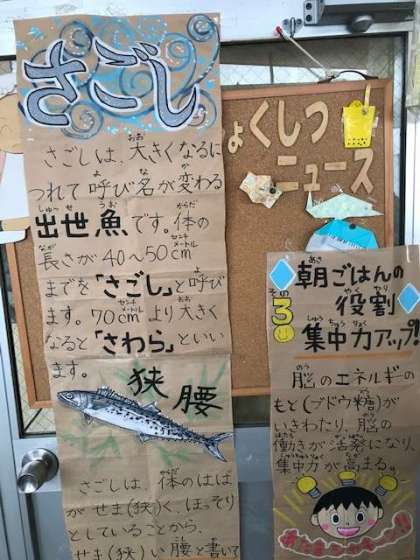 さごし
さごしは、大きくなるに
つれて呼び名が変わる
出世魚です。体の
長さが40～50cm
までを「さごし」と呼び
ます。70cmより大きく
なると「さわら」といい
ます。
狭腰
さごしは、体のはば
がせま(狭)く、ほっそり
としていることから
せま(狭)い腰と書いて
ょくしつ
ニュース
朝ごはんの
役割
その3
集中力アップ!
脳のエネルギーの
もと(ブドウ糖)が
いきわたり、脳の
働きが活発になり、
集中力が高まる。